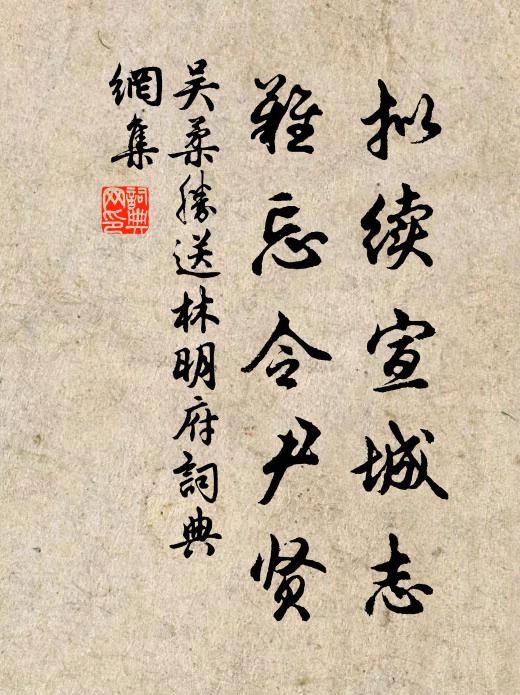 拟续宣城志
难忘令尹贤
吴柔勝送林明府詞典
網集
詞典网印